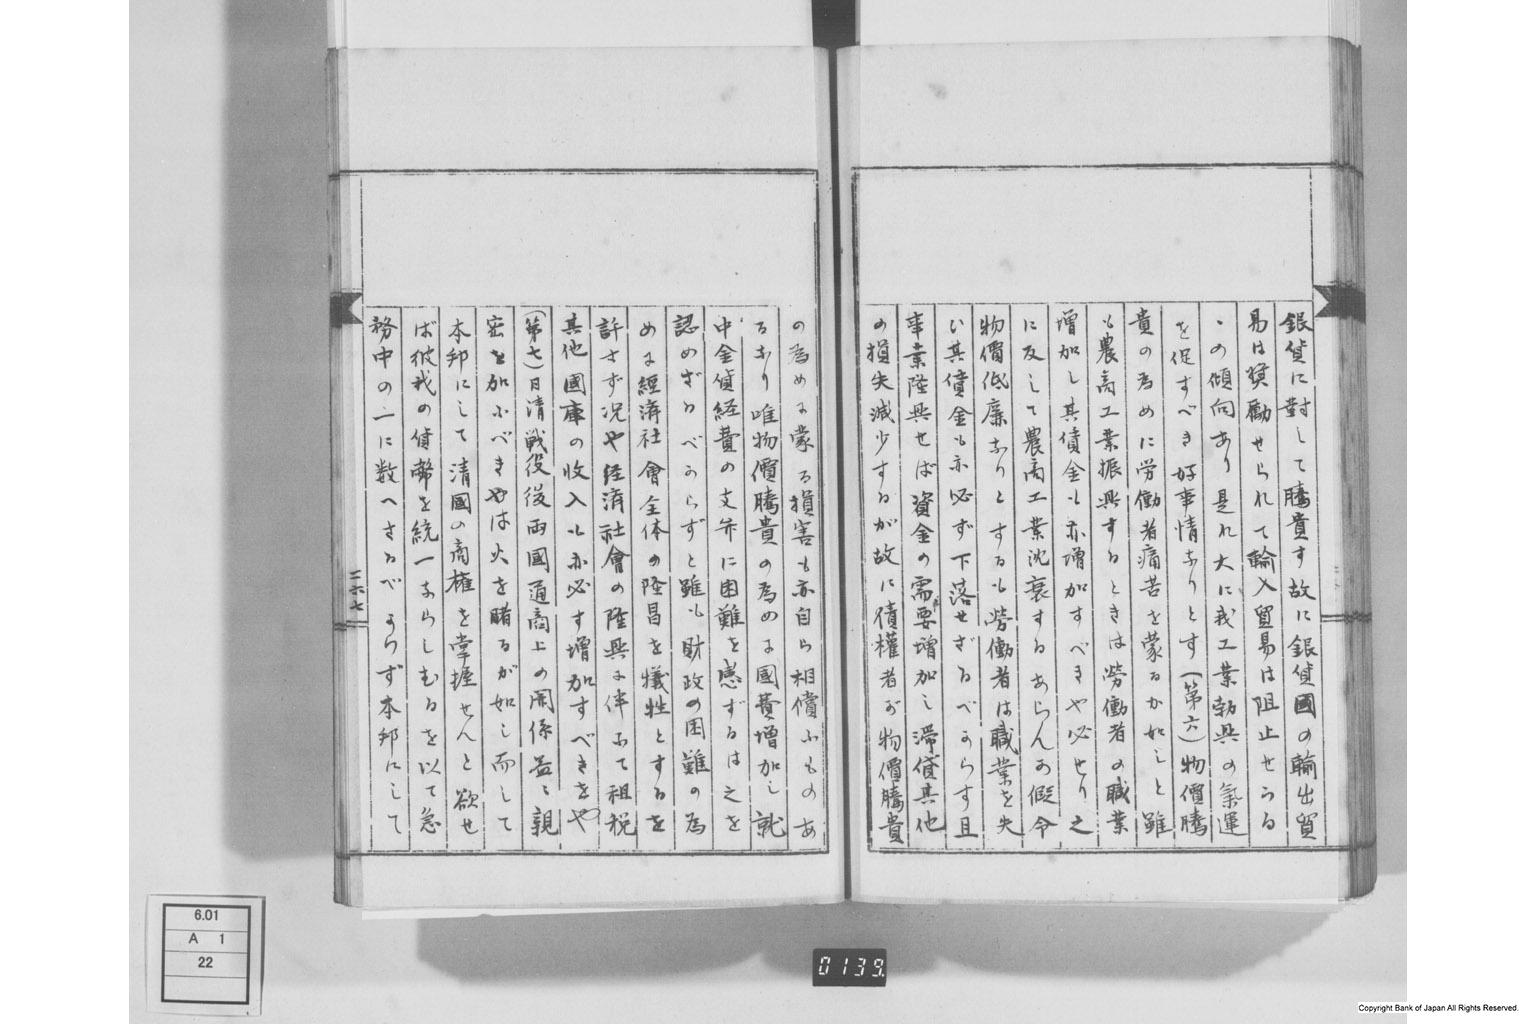 銀貨に對して騰貴す故に銀貨國の輸出貿
易は奨勵せられて輸入貿易は阻止せらる
ゝの傾向あり是れ大に我工業勃興の氣運
を促すべき好事情なりとす(第六)物價騰
貴の為めに労働者痛苦を蒙るか如しと雖
も農商工業振興するときは労働者の職業
増加し其債金も亦増加すべきや必せり之
に反して農商工業沈衰するあらんか假令
物價低廉なりとするも労働者は職業を失
い其債金も亦必ず下落せざるべからす且
事業隆興せば資金の需要増加し滞貸其他
の損失減少するが故に債權者が物價騰貴
の為めに蒙る損害も亦自ら相償ふものあ
るなり唯物價騰貴の為めに國費増加し就
中金貨経費の支弁に困難を感ずるは之を
認めざるべからずと雖も財政の困難の為
めに經濟社會全体の隆昌を犠牲とするを
許さず况や経済社會の隆興に伴ふて租税
其他國庫の收入も亦必す増加すべきをや
(第七)日清戦役後両國通商上の関係益々親
密を加ふべきやは火を睹るが如し而して
本邦にして清國の商権を掌握せんと欲せ
ば彼我の貨幣を統一ならしむるを以て急
務中の一に数へさるべからず本邦にして
二六七
6.01
A 1
22
0139
Copyright Bank of Japan All Rights Reserved.